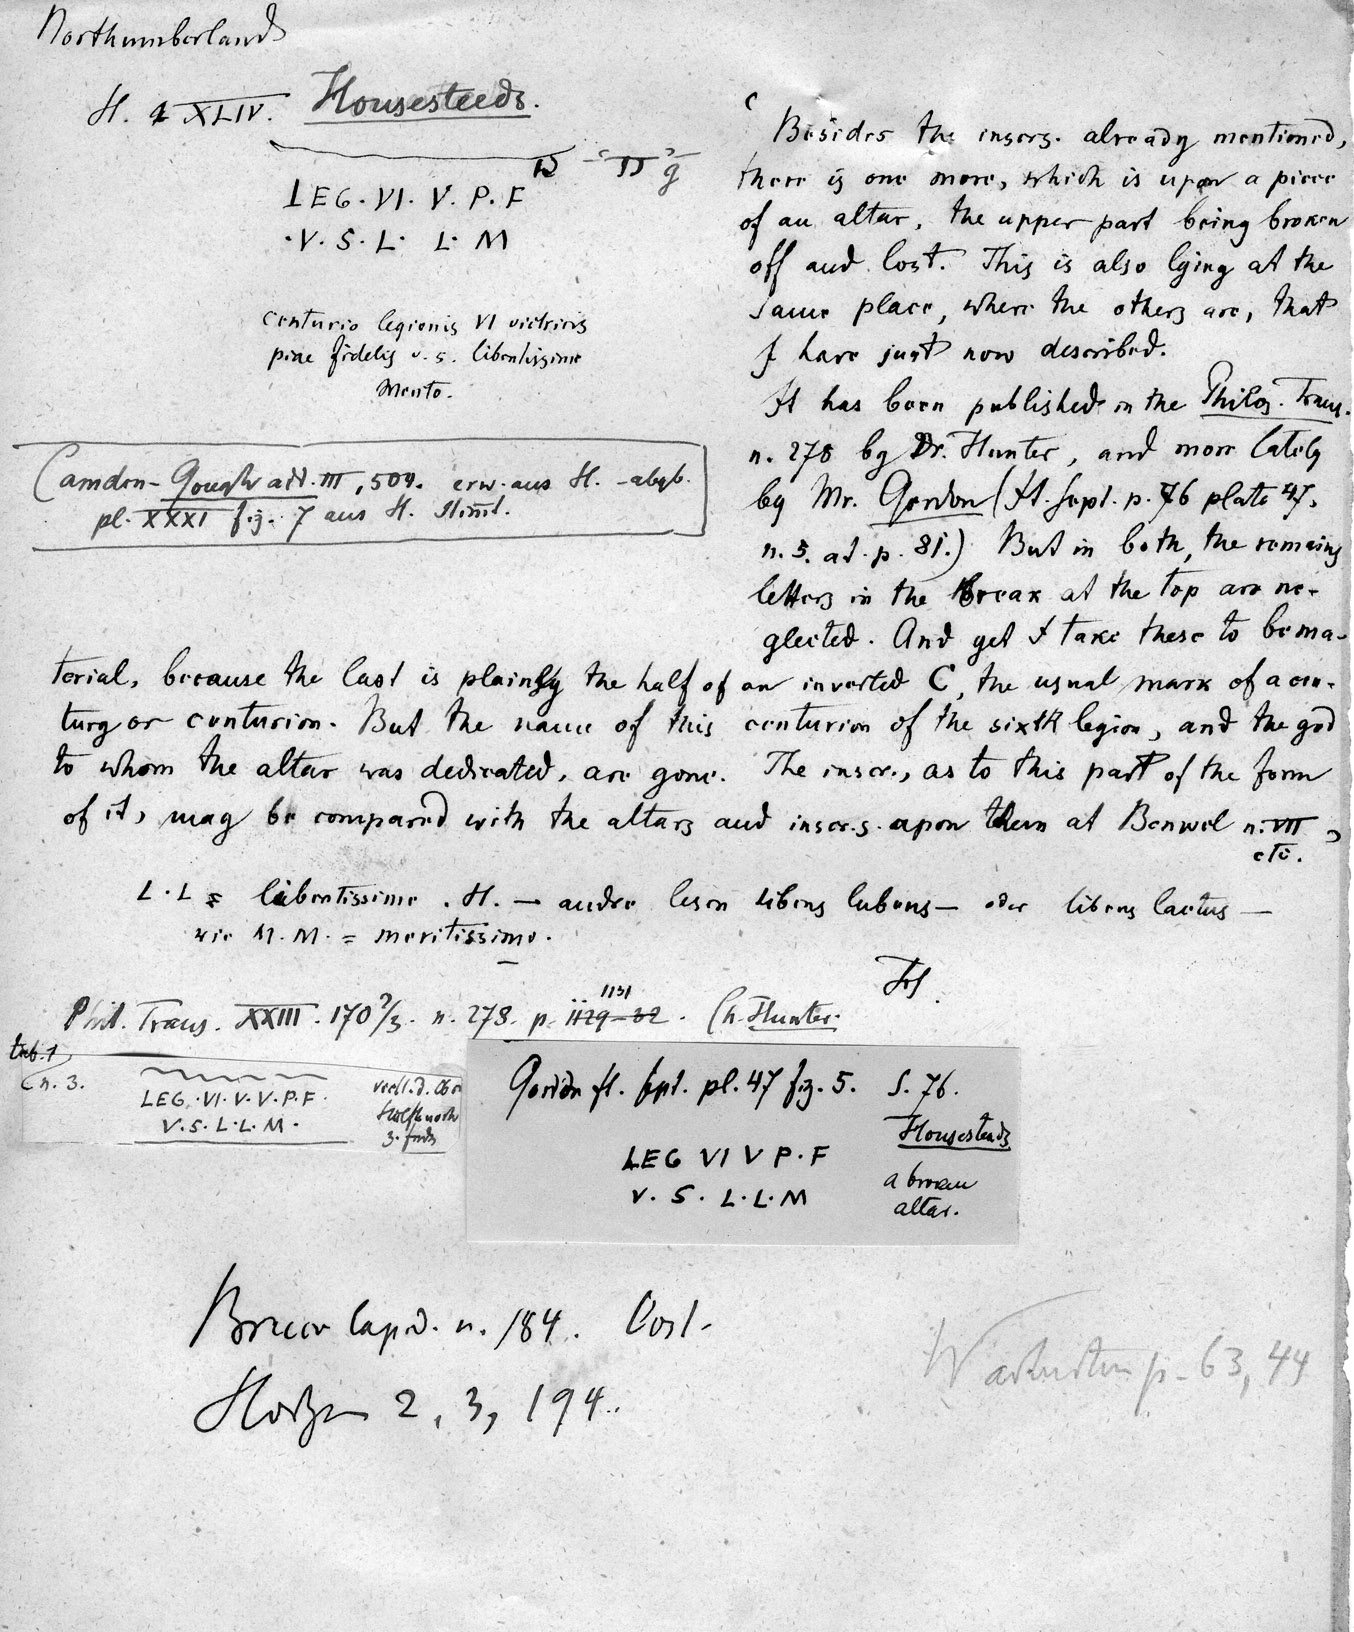 Northumberland
H. XLIV. Housesteeds.
LEG. VI. V. P. F
.V. S. L. L. M
centurio legionis VI victricis
piae fidelis v. s. libentissime
merito.
Camden-Gough add. III, 504. erw. aus H. - abgb.
pl. XXXI fig. 7 aus H.
Besides the inscrs. already mentioned,
there is one more, which is upon a piece
of an altar, the upper part being broken
off and lost. This is also lying at the
same place, where the others are, that
I have just now described.
It has been published in the Philos. Trans.
n. 278 by Dr. Hunter, and more lately
by Mr. Gordon (It. Sept. p. 76 plate 47,
n. 5. at p. 81.) But in both, the remains
letters in the break at the top are ne-
glected. And yet I take these to be ma-
terial, because the last is plainly the half of an inverted C, the usual mark of a cen-
tury or centurion. But the name of this centurion of the sixth legion, and the god
to whom the altar was dedicated, are gone. The inscr., as to this part of the form
of it, may be compared with the altars and inscr.s. upon them at Benwel n. VII,
etc.
L. L = libentissime. H. — andre lesen libens lubens — oder libens laetus —
wie M. M. = meritissimo.
Phil. Trans. XXIII. 170 2/3. n. 278. p. 1129-32. Ch. Hunter.
1131
tab. 1
n. 3.
LEG. VI. V. V. P. F.
V. S. L. L. M.
Gordon It. Sept. pl. 47 fig. 5. S. 76.
Housesteads
LEG VI V P. F
V. S. L. L. M
a broken
altar.
Bruce lapid. n. 184. Lost.
2, 3, 194.
p. 63, 44